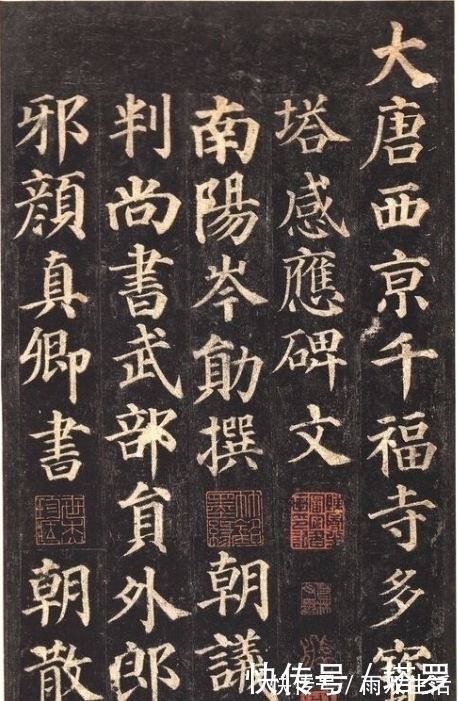 大唐西京千福寺多寶
塔感應碑文
南陽岑勛撰 朝議
判尚書武部員外郎
邪顏真卿書 朝散
快传号/
快传号/雨水生活